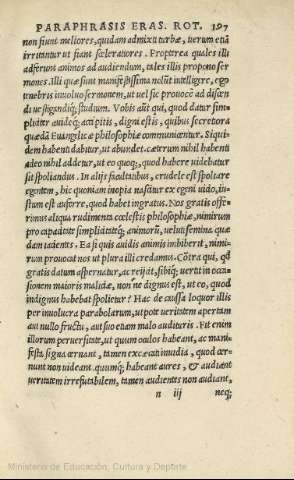 PARAPHRASIS ERAS. ROT. 197
non fiunt meliores, quidam admixti turbæ, uerum etiã
irritentur ut fiant sceleratiores. Propterea quales illi
adferunt animos ad audiendum, tales illis propono ser
mones. Illi quæ sunt manifestissima nolũt intelligere, ego
tenebris inuoluo sermonem, ut uel sic prouocẽ ad discen
di uestigandiq; studium. Vobis aũt qui, quod datur sim-
pliciter auideq; accipitis, digni estis, quibus secretiora
quædã Euangelicæ philosophiæ communicentur. Siqui-
dem habenti dabitur, ut abundet. cæterum nihil habenti
adeo nihil addetur, ut eo quoq;, quod habere uidebatur
sit spoliandus. In alijs facultatibus, crudele est spoliare
egentem, hic quoniam inopia nascitur ex egeni uicio, iu-
stum est auferre, quod habet ingratus. Nos gratis offe-
rimus aliqua rudimenta cœlestis philosophiæ, nimirum
pro capacitate simplicitateq; animorũ, uelut semina quæ
dam iacentes. Ea si quis auidis animis imbiberit, nimi-
rum prouocat nos ut plura illi credamus. Cõtra qui, qđ
gratis datum aspernatur, ac reijcit, sibiq; uertit in occa-
sionem maioris maliciæ, non ne dignus est, ut eo, quod
indignus habebat spolietur? Hac de caussa loquor illis
per inuolucra parabolarum, ut pote ueritatem apertam
aut nullo fructu, aut suo etiam malo audituris. Fit enim
illorum peruersitate, ut quum oculos habeant, ac mani-
festa signa cernant, tamen excæcati inuidia, quod cer-
nunt non uideant. quumq; habeant aures, & audiant
ueritatem irrefutabilem, tamen audientes non audiant,
n iij neq;
Ministerio de Educación, Cultura y Deporte